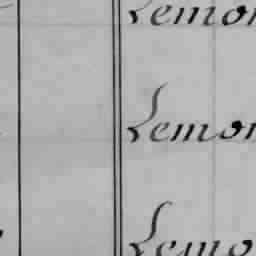 Lemon
Lemon
Lemo